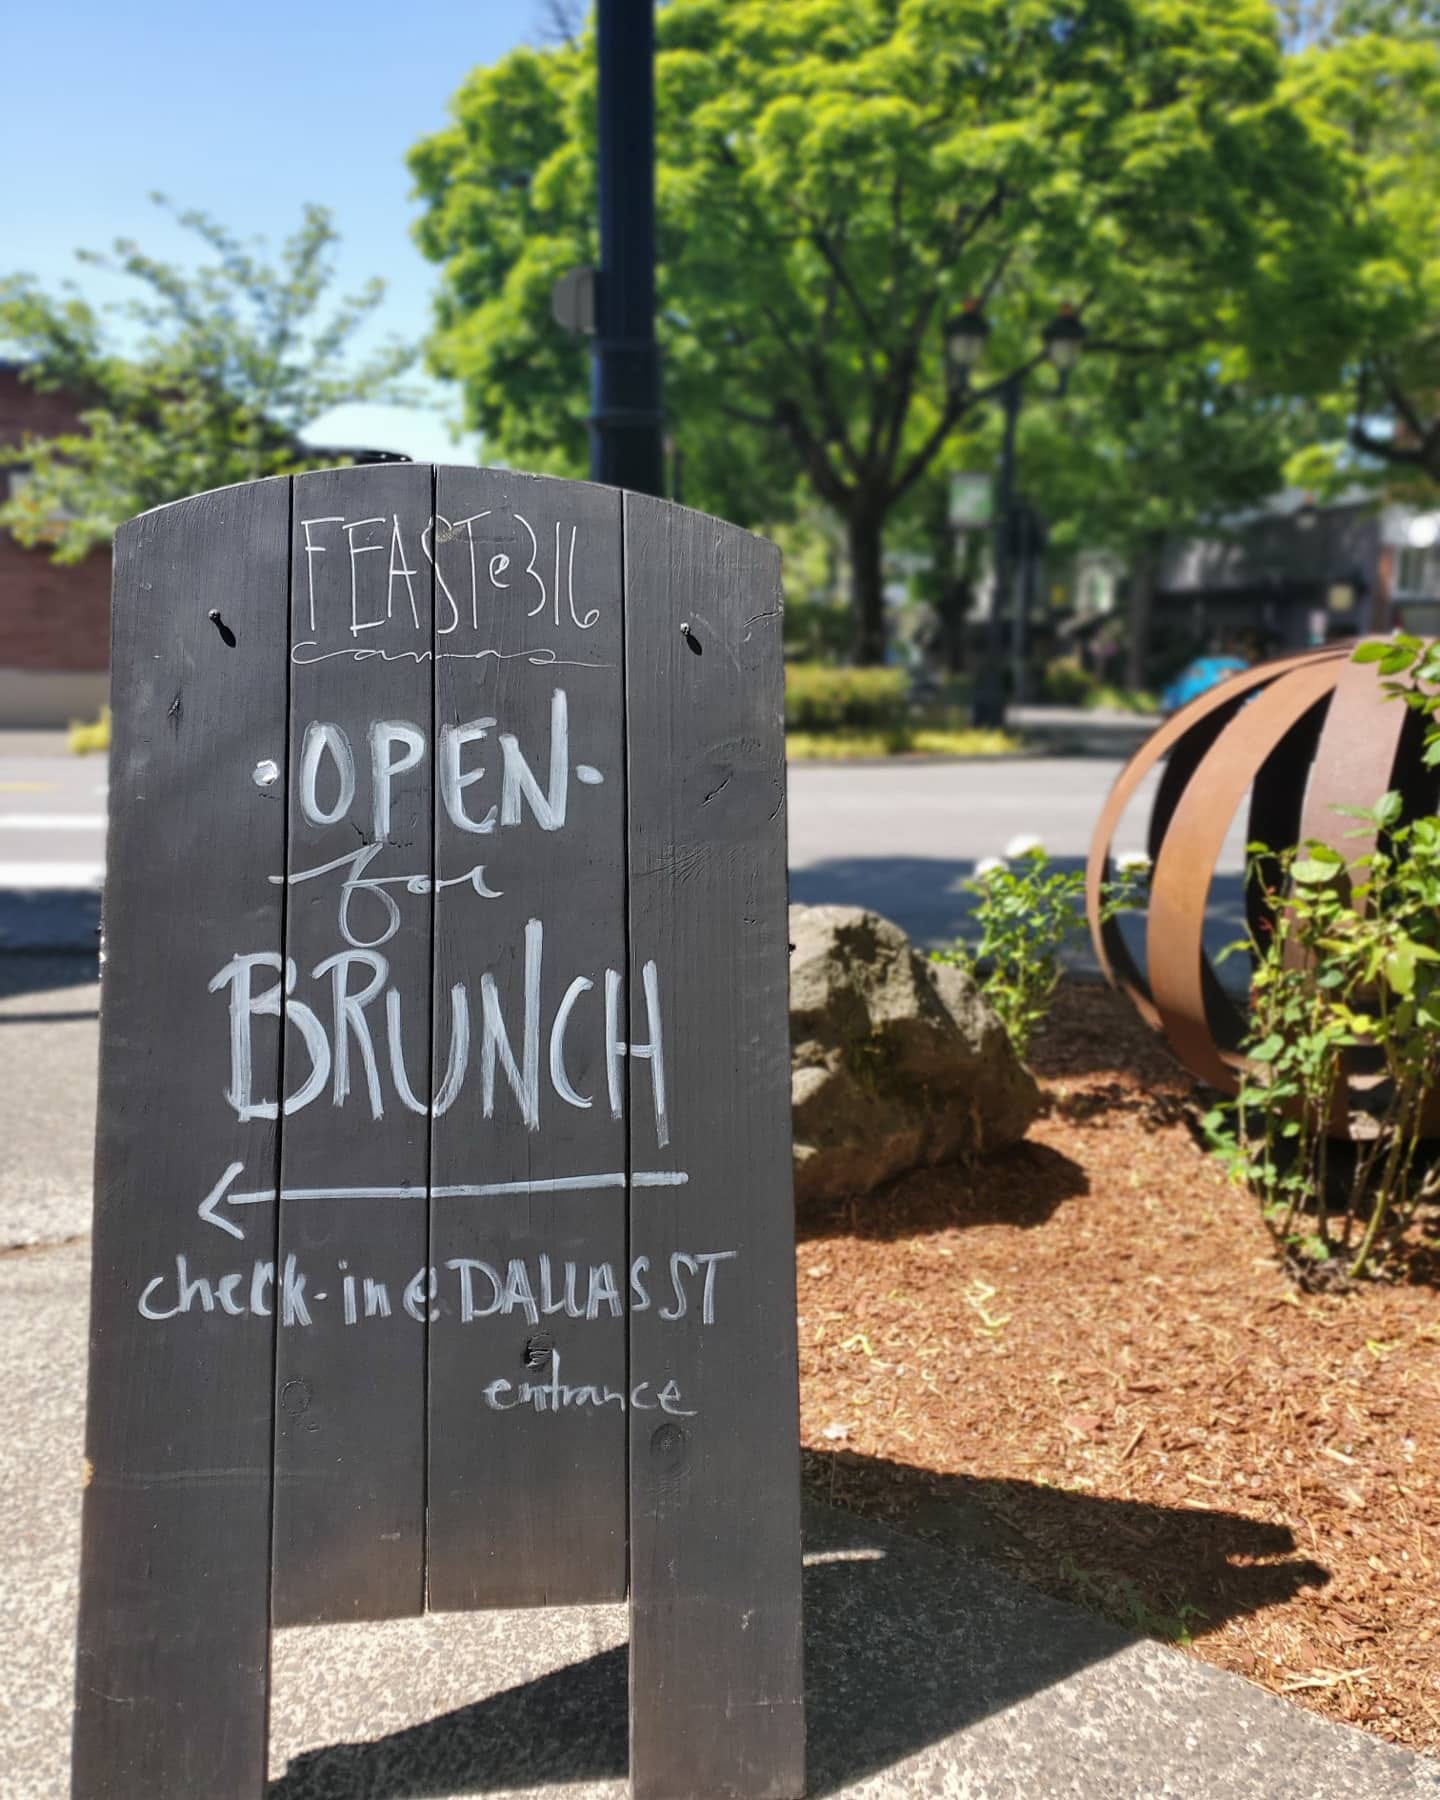 FEAST@316
Camas
·OPEN·
for
BRUNCH
←
check-in @ DALLAS ST
entrance